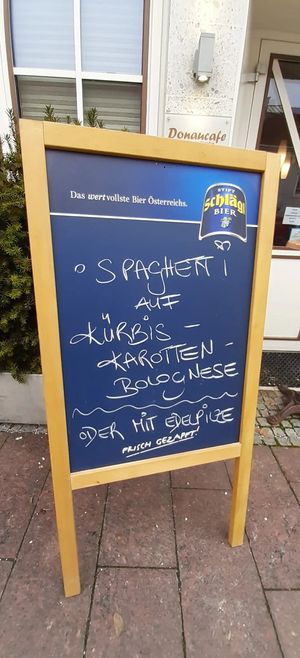 Donaucafe
Das wertvollste Bier Österreichs.
STIFT
Schlägl
BIER
SPAGHETTI
AUF
KÜRBIS -
KAROTTEN -
BOLOGNESE
ODER MIT EDELPILZE
FRISCH GEZAPFT!